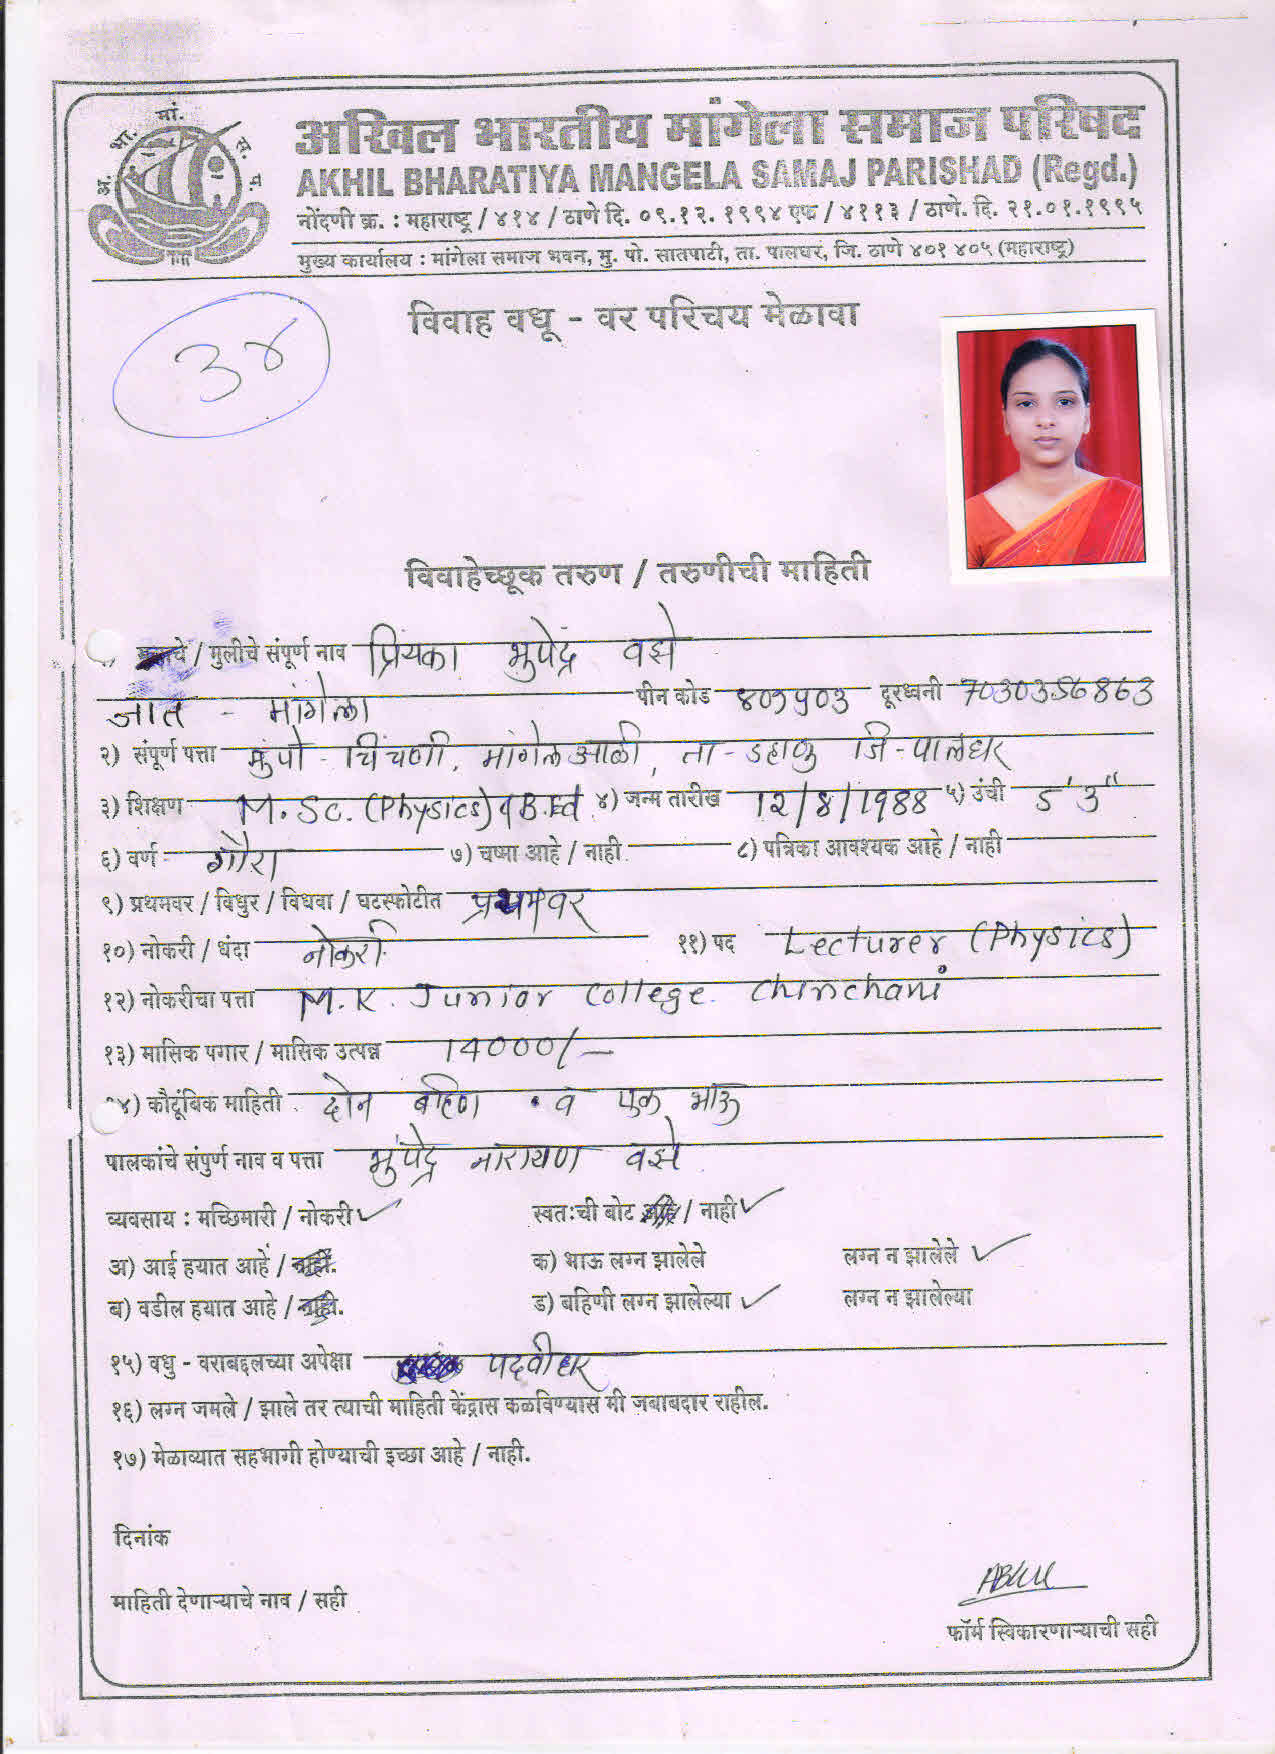 अ. भा. मां. स. प.
अखिल भारतीय मांगेला समाज परिषद
AKHIL BHARATIYA MANGELA SAMAJ PARISHAD (Regd.)
नोंदणी क्र. : महाराष्ट्र / ४१४ / ठाणे दि. ०९.१२. १९९४ एफ / ४११३ / ठाणे. दि. २१.०१.१९९५
मुख्य कार्यालय : मांगेला समाज भवन, मु. पो. सातपाटी, ता. पालघर, जि. ठाणे ४०१ ४०५ (महाराष्ट्र)
विवाह वधू - वर परिचय मेळावा
३४
विवाहेच्छूक तरुण / तरुणीची माहिती
/ मुलीचे संपूर्ण नाव प्रियंका भुपेंद्र वझे
जात - मांगेला पीन कोड ४०१५०३ दूरध्वनी 7030356863
२) संपूर्ण पत्ता मुंपो - चिंचणी, मांगेलआळी, ता - डहाणु जि - पालघर
३) शिक्षण M. Sc. (Physics) व B.Ed ४) जन्म तारीख 12/8/1988 ५) उंची 5' 3"
६) वर्ण गौरा ७) चष्मा आहे / नाही ८) पत्रिका आवश्यक आहे / नाही
९) प्रथमवर / विधुर / विधवा / घटस्फोटीत प्रथमवर
१०) नोकरी / धंदा नोकरी ११) पद Lecturer (Physics)
१२) नोकरीचा पत्ता M. K. Junior College. Chinchani
१३) मासिक पगार / मासिक उत्पन्न 14000/-
१४) कौटूंबिक माहिती दोन बहिण व एक भाऊ
पालकांचे संपुर्ण नाव व पत्ता भुपेंद्र नारायण वझे
व्यवसाय : मच्छिमारी / नोकरी ✓ स्वतःची बोट आहे / नाही ✓
अ) आई हयात आहे / नाही. क) भाऊ लग्न झालेले लग्न न झालेले ✓
ब) वडील हयात आहे / नाही. ड) बहिणी लग्न झालेल्या ✓ लग्न न झालेल्या
१५) वधु - वराबद्दलच्या अपेक्षा पदवीधर
१६) लग्न जमले / झाले तर त्याची माहिती केंद्रास कळविण्यास मी जबाबदार राहील.
१७) मेळाव्यात सहभागी होण्याची इच्छा आहे / नाही.
दिनांक
माहिती देणाऱ्याचे नाव / सही
फॉर्म स्विकारणाऱ्याची सही